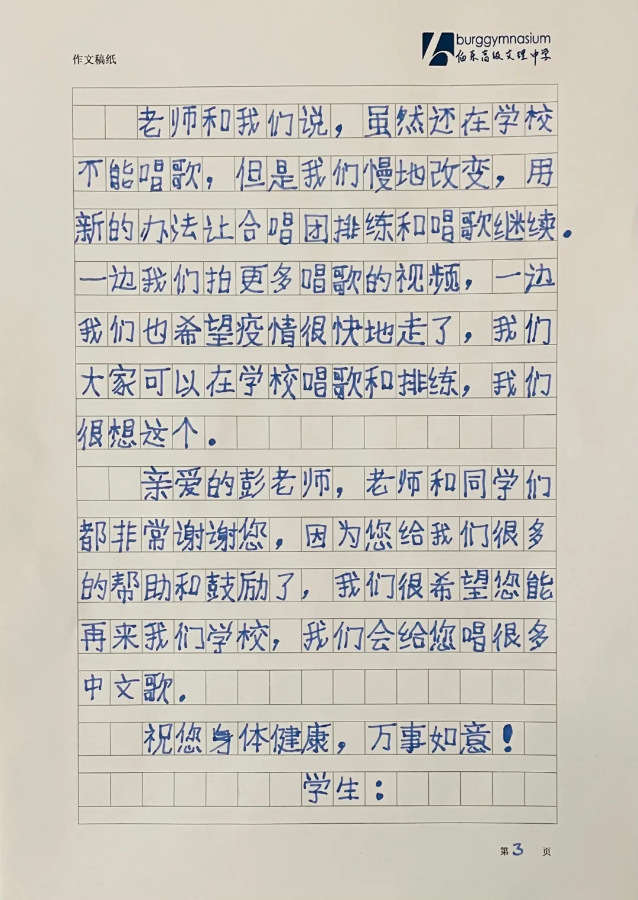 作文稿纸
burggymnasium
伯乐高级文理中学
老师和我们说，虽然还在学校
不能唱歌，但是我们慢地改变，用
新的办法让合唱团排练和唱歌继续。
一边我们拍更多唱歌的视频，一边
我们也希望疫情很快地走了，我们
大家可以在学校唱歌和排练，我们
很想这个。
亲爱的彭老师，老师和同学们
都非常谢谢您，因为您给我们很多
的帮助和鼓励了，我们很希望您能
再来我们学校，我们会给您唱很多
中文歌。
祝您身体健康，万事如意！
学生：
第3页